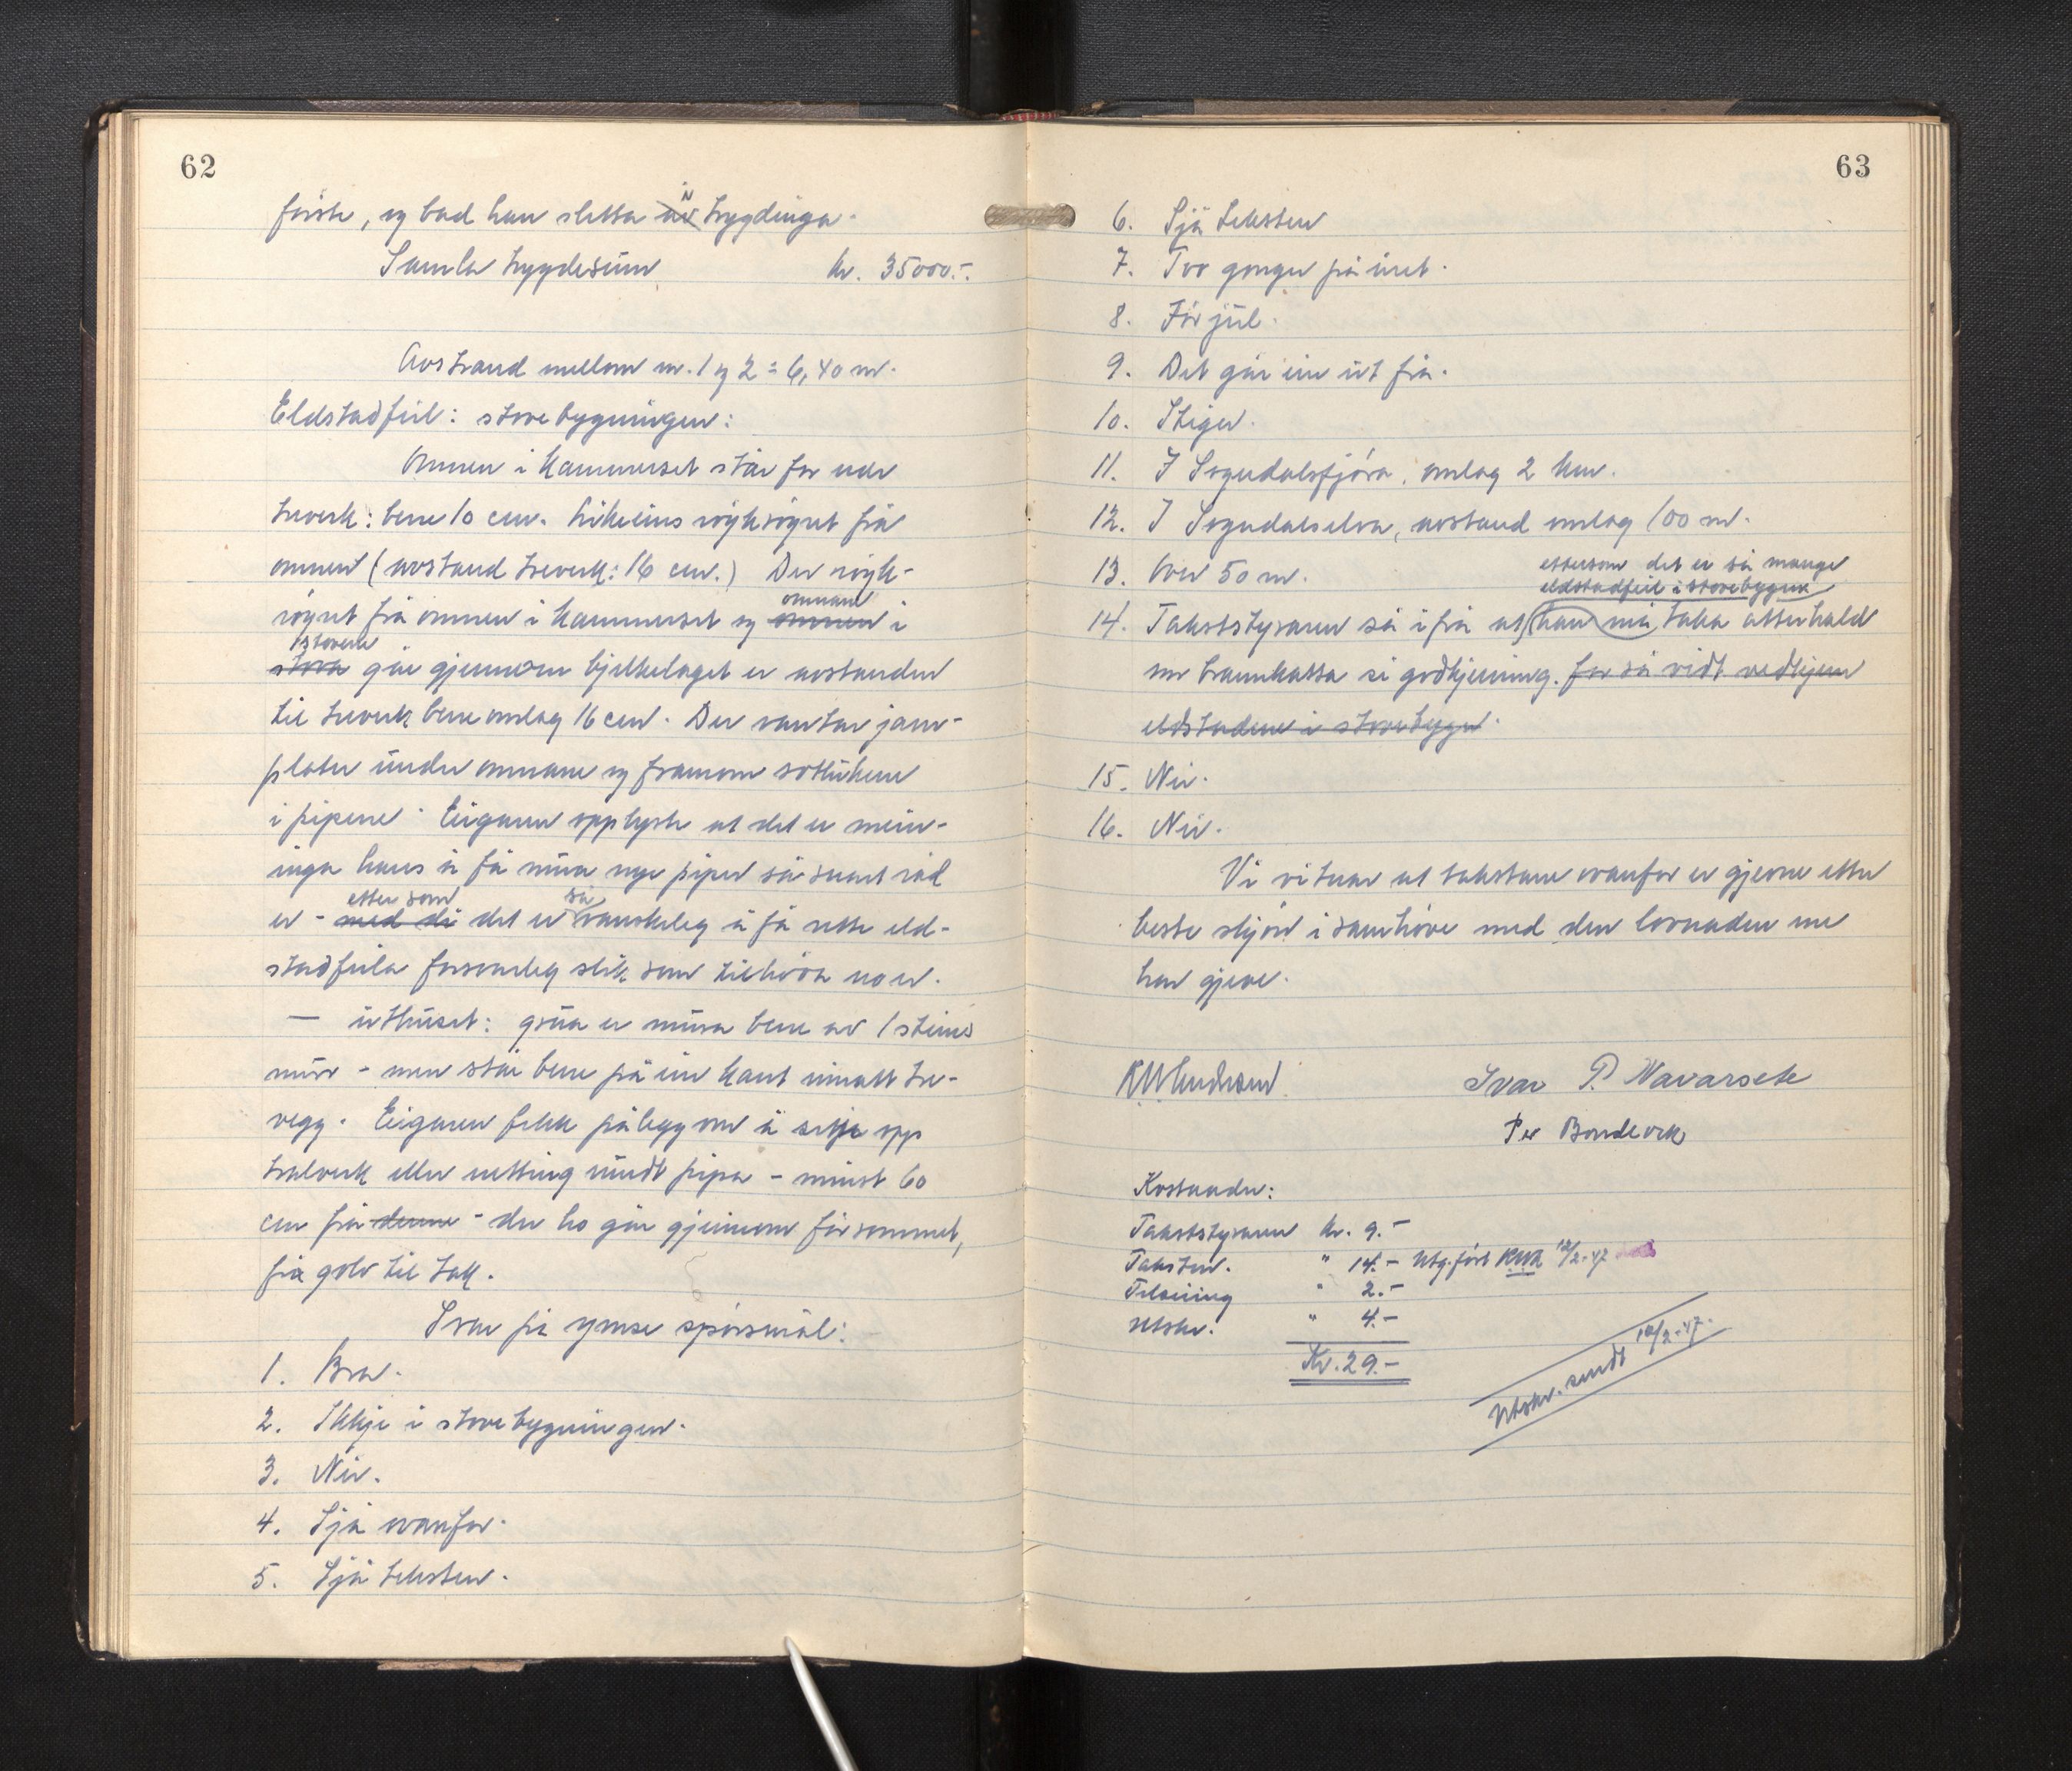 62
første, og bad han sletta av trygdinga.
Samla trygdesum kr. 35000.-.
Avstand mellom nr. 1 og 2 = 6,40 m.
Eldstadfeil: stovebygningen:
Omnen i kammerset står for nær
treverk: berre 10 cm. Likeeins røykrøyret frå
omnen (avstand treverk: 16 cm.) Der røyk-
røyret frå omnen i kammerset og omnen omnane i
stova 1 stovene går gjennom bjelkelaget er avstanden
til treverk berre omlag 16 cm. Der vantar jarn-
plater under omnane og framom sotlukene
i pipene. Eigaren opplyste at det er mein-
inga hans å få mura nye piper så snart råd
er - med di ettersom det er så vanskeleg å få retta eld-
stadfeila forsvarleg slik som tilhøva no er.
— uthuset: grua er mura berre av 1 steins
mur - men står berre på ein kant innått tre-
vegg. Eigaren fekk pålegg om å setja opp
tralverk eller netting rundt pipa - minst 60
cm frå denne - der ho går gjennom förrommet,
frå golv til tak.
Svar på ymse spørsmål:
1. Bra.
2. Ikkje i stovebygningen.
3. Nei.
4. Sjå ovanfor.
5. Sjå teksten.
63
6. Sjå teksten
7. Two gonger på året.
8. Før jul.
9. Det går ein ut frå.
10. Stiger.
11. I Sogndalsfjøra, omlag 2 km.
12. I Sogndalselva, avstand omlag 100 m.
13. Over 50 m.
ettersom det er så mange
eldstadfeil i stovebygn.
14. Takststyraren sa i frå at han må taka atterhald
om brannkassa si godkjenning. for så vidt vedkjem
eldstadene i stovebygn.
15. Nei.
16. Nei.
Vi vitnar at takstane ovanfor er gjevne etter
beste skjøn i samhøve med den lovnaden me
har gjeve.
Ivar P. Navarsete
Per Bondevik
Kostnader:
Takststyraren kr. 9.-
Takstm. " 14.- Utg. ført 12/2-47
Tilseiing " 2.-
Utskr. " 4.-
Kr. 29.-
Utskr. sendt 12/2-47.